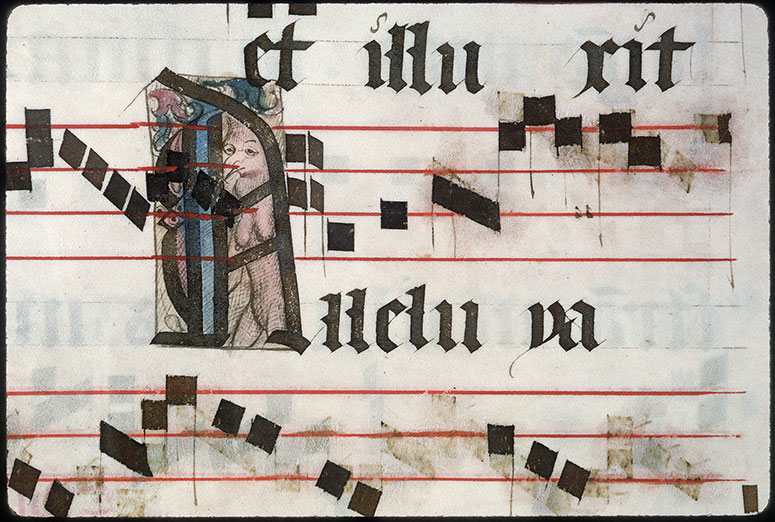 et illu xit
Allelu ya